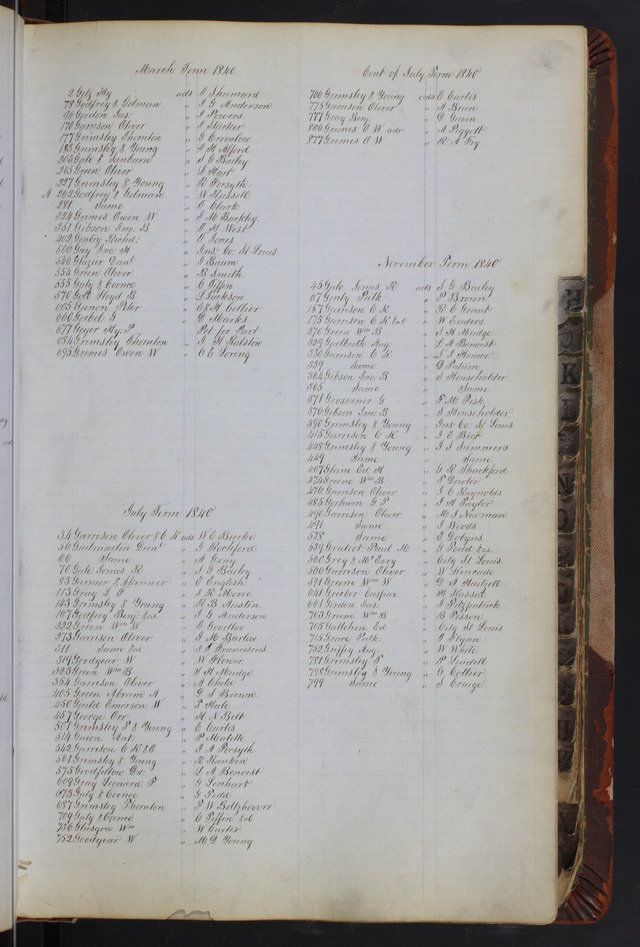 March Term 1840
2 Getz Hy ads I Shumard
78 Godfrey & Gilman " I G Anderson
96 Gordon Jas. " I Powers
170 Garrison Oliver " A Tucker
177 Grimsley Thornton " G Crimlow
185 Grimsley & Young " A H Alford
205 Gale & Sanburn " S G Bailey
215 Green Oliver " L Hart
227 Grimsley & Young " R Forsyth
A 262 Godfrey & Gilman " W Russell
281 Same " A Clark
324 Grimes Owen W " S M Buckley
351 Gibson Ino. B " T H West
402 Gentry Richd. " C Jones
506 Gay Ino. H " Ins. Co. St Louis
546 Glazier Danl " I Baum
554 Green Oliver " B Smith
555 Gaty & Coonce " C Piffin
570 Goff Lloyd B " L Jackson
605 Guion Peter " E & H Collier
606 Goebel G " D Marks
677 Geyer Hy. P " Pet. for Part
684 Grimsley Thornton " I H Ralston
695 Grimes Owen W " C E Loring
July Term 1840
34 Garrison Oliver & C K ads W E Burke
56 Gutmarton Danl " G Rochford
66 Same " A Gray
70 Gale Jonas R " I G Busby
83 Garnier & Skinner " E English
113 Gray L G " I R Moore
145 Grimsley & Young " H B Austin
167 Godfrey Benj. &al " I S Anderson
222 Green Wm W " I Goodloe
275 Garrison Oliver " G M Barlow
311 Same &al " I S Franciscus
319 Goodyear W " W Flower
323 Green Wm B " S H Mudge
354 Garrison Oliver " A Chele
405 Green Abram A " G I Brown
450 Gould Emerson W " P Hale
457 George Orr " H N Belt
501 Grimsley P & Young " E Curtis
514 Garon Ant. " P Martelle
542 Garrison C K & O " I A Forsyth
561 Grimsley & Young " R Rankin
575 Goodfellow Dd. " L A Benoist
609 Gray Leonard P " G Lenhart
673 Gaty & Coonce " G Podd
687 Grimsley Thornton " P W Beltzhoover
709 Gaty & Coonce " C Piffin &al
736 Glasgow Wm " W Carter
752 Goodyear W " M D Young
Cont of July Term 1840
706 Grimsley & Young ads E Curtis
775 Garrison Oliver " A Breen
777 Gray Benj " D Gavin
806 Grimes O W adr " A Piggott
877 Grimes O W " R A Fry
November Term 1840
45 Gale Jonas R ads S G Bailey
67 Ginty Patk " P Brown
157 Garrison C K " R C Grant
175 Garrison C K &al " W Enders
276 Green Wm B " S H Mudge
329 Guilberth Aug " L A Benoist
330 Garrison C K " L I Homer
339 Same " D Tatum
364 Gibson Ino. B " I Householder
365 Same " Same
371 Grosvenor G " F M Pask
376 Gibson Ino. B " I Householder
390 Grimsley & Young " Ins Co. St Louis
415 Garrison C K " I E Bier
448 Grimsley & Young " I S Summers
449 Same " Same
467 Glenn Ed H " G R Shackford
474 Greene Wm B " P Dowler
476 Garrison Oliver " I C Reynolds
485 Gorham G P " I H Taylor
490 Garrison Oliver " M I Newman
491 Same " I Woods
538 Same " E Dobyns
539 Gratiot Paul M " G Podd &al
560 Grey & McEvoy " City St Louis
596 Garrison Oliver " W Kincaide
591 Greene Wm W " D A Hartzell
641 Graber Caspar " M Kassel
661 Gordon Jas. " I Fitzpatrick
703 Greene Wm B " B Pesson
705 Gallehen Ed " City St Louis
715 Grace Patk " A Flynn
752 Griffey Aug " W White
781 Grimsley P " P Lindell
798 Grimsley & Young " G Collier
799 Same " S Cruge
H
K
N
O